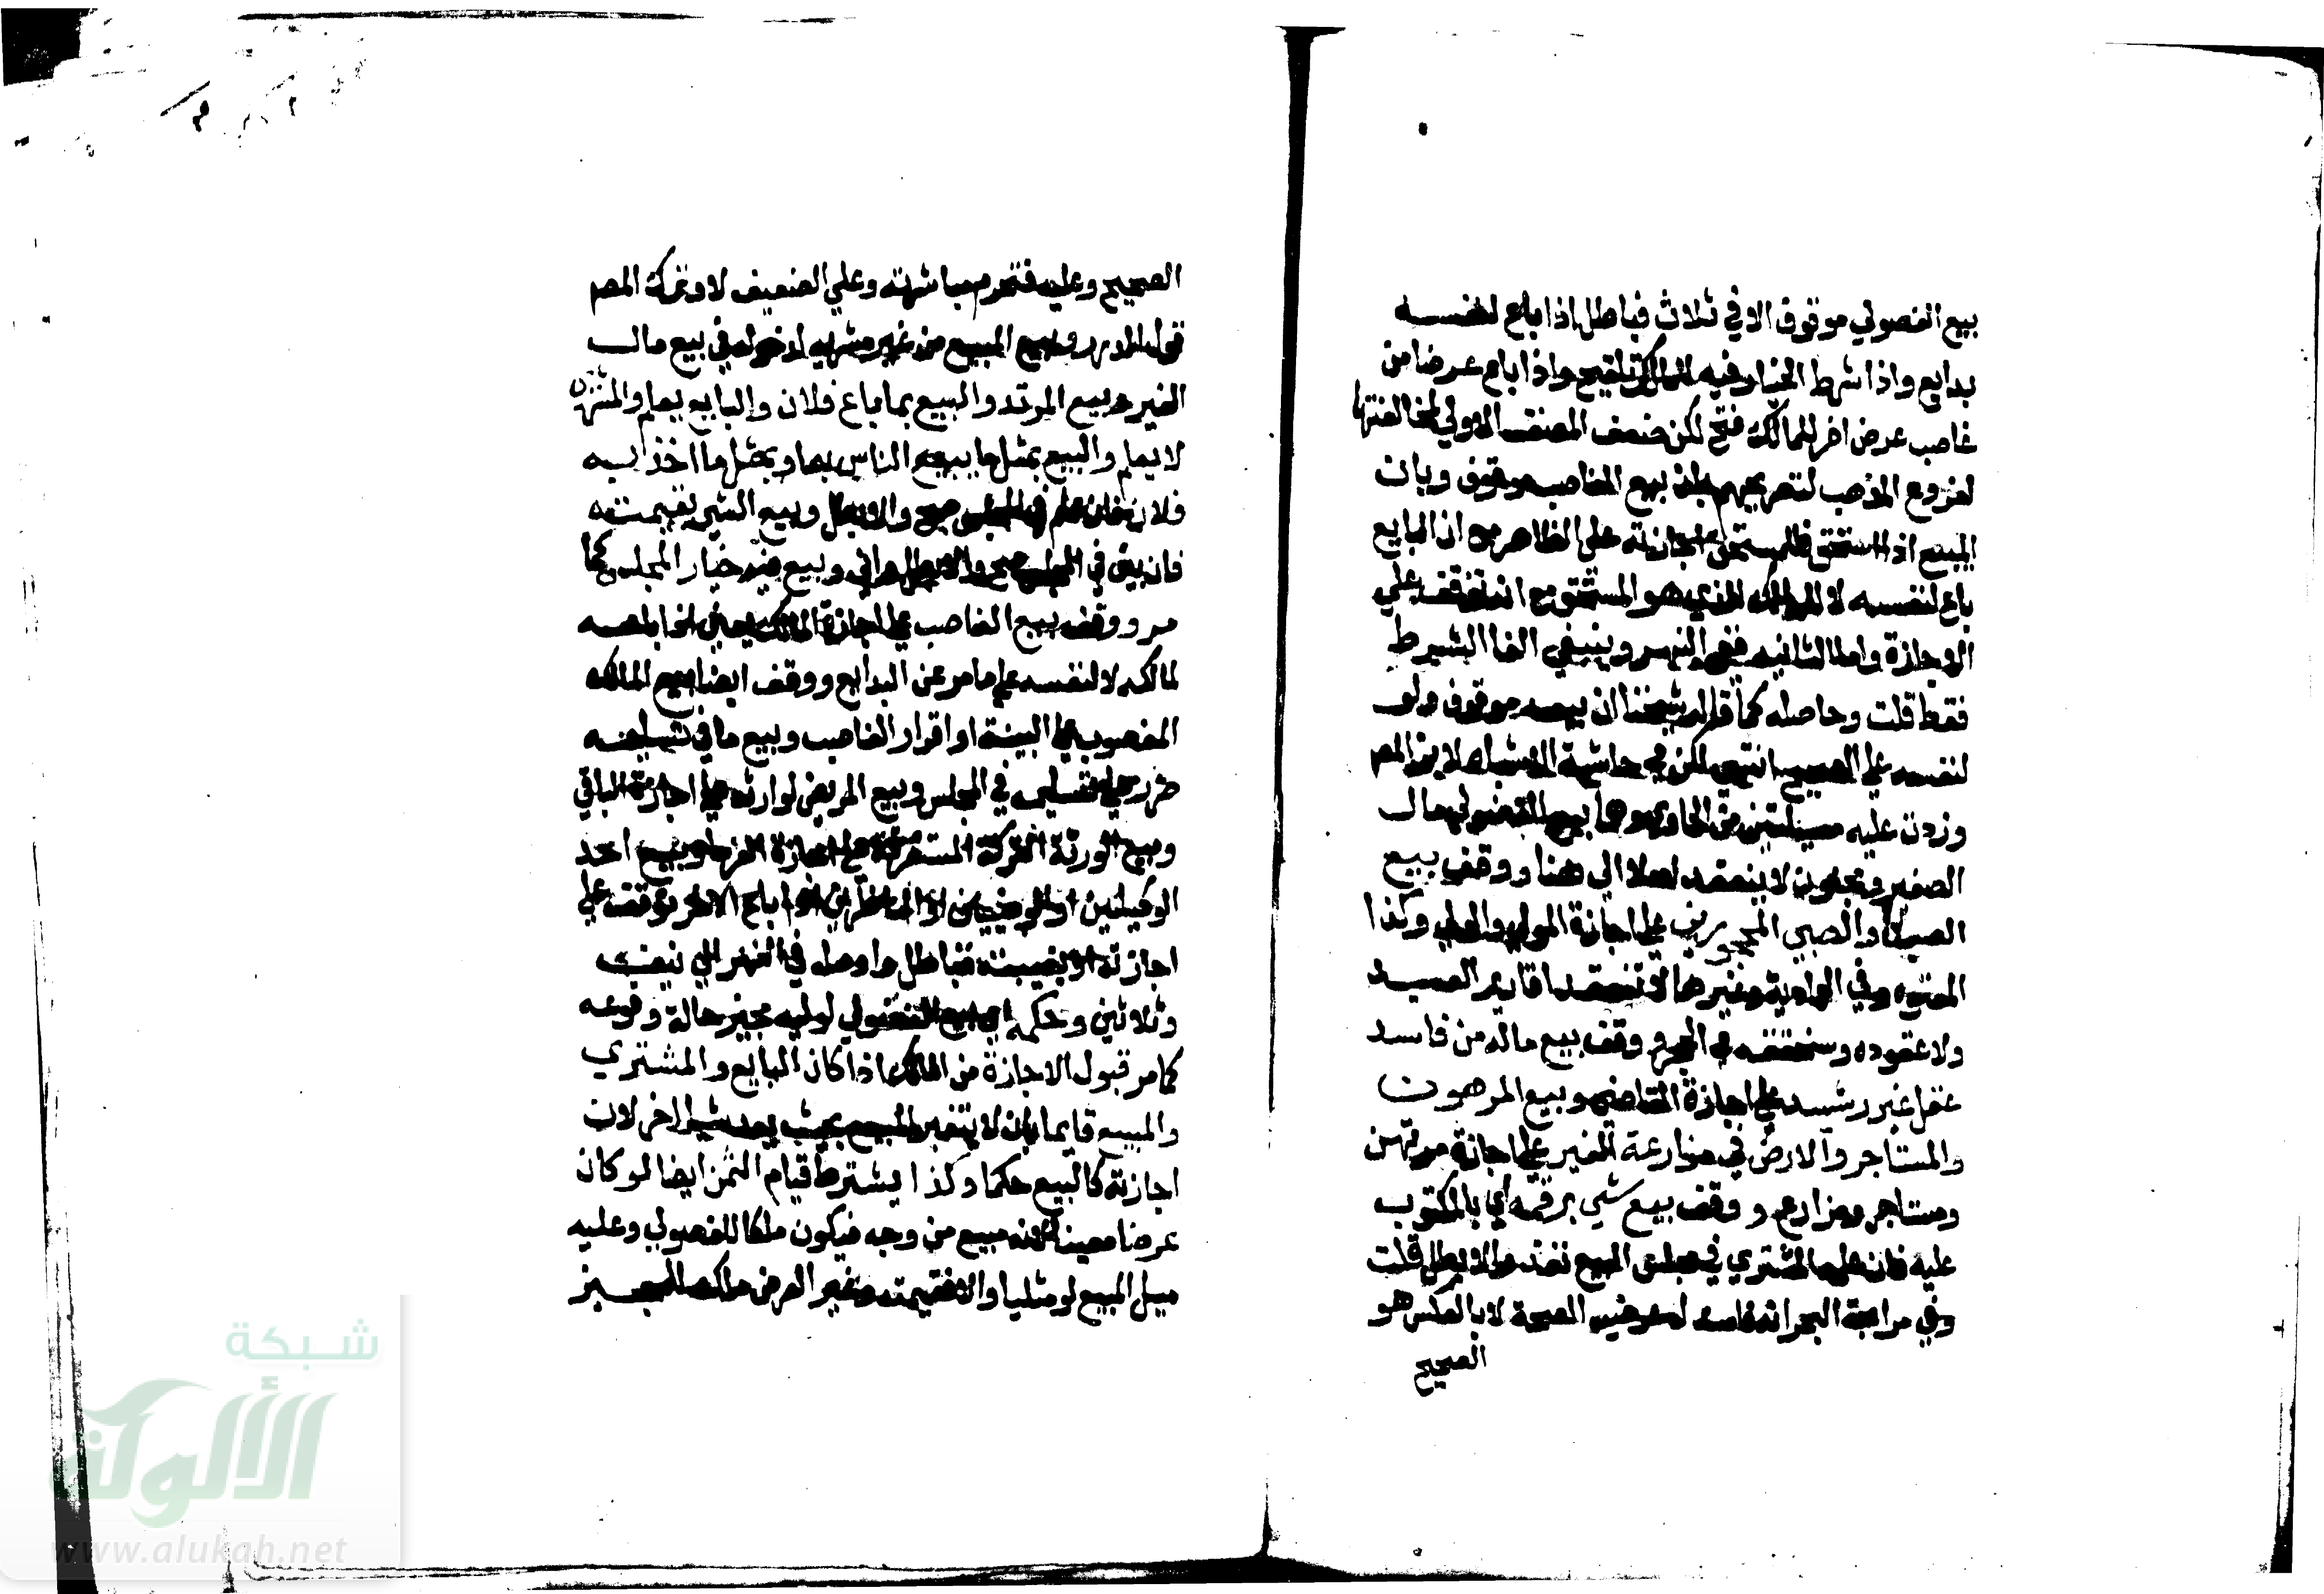 بيع الفضولي موقوف الا في ثلاث فباطل اذا باع لنفسه
بدايع واذا شرط الخيار فيه للمالك تلقيح واذا باع عرضا من
غاصب عرض اخر للمالك فتح لكن ضعف المصنف الاولي لمخالفتها
لفروع المذهب لتصريحهم بان بيع الغاصب موقوف وبان
المبيع اذا استحق فللمستحق اجازته علي الظاهر مع ان البايع
باع لنفسه لا للمالك الذي هو المستحق مع انه توقف علي
الاجازة واما الثانية ففي النهر وينبغي الغا الشرط
فقط قلت وحاصله كما قاله شيخنا ان بيعه موقوف ولو
لنفسه علي الصحيح انتهي لكن في حاشية الاشباه لابن المصـ
وزدت عليه مسيلتين من الحاوي وهما بيع الفضولي مال
الصغير ومجنون لا ينعقد اصلا الي هنا ووقف بيع
العبد والصبي المحجورين علي اجازة المولي والولي وكذا
المعتوه وفي العمادية وغيرها لا تنعقد اقارير العبيد
ولا عقوده وسنحققه في الحجر ووقف بيع ماله من فاسد
عقل غير رشيد علي اجازة القاضي وبيع المرهون
والمستاجر والارض في مزارعة الغير علي اجازة مرتهن
ومستاجر ومزارع ووقف بيع شي برقمه اي بالمكتوب
عليه فان علم المشتري في مجلس البيع نفذ والا بطل قلت
وفي مرابحة البحر انه فاسد له عرضية الصحة لا بالعكس هو
الصحيح
الصحيح وعليه فتحرم مباشرته وعلي الضعيف لا وترك المصـ
قول الدرر وبيع المبيع من غير مشتريه لدخوله في بيع مال
الغير وبيع المرتد والبيع بما باع فلان والبايع يعلم والمشتري
لا يعلم والبيع بمثل ما يبيعه الناس به او بمثل ما اخذ به
فلان فان علم في المجلس صح والا بطل وبيع الشي بقيمته
فان بين في المجلس صح والا بطل وبيع فيه خيار المجلس كما
مر ووقف بيع الغاصب علي اجازة المالك يعني اذا باعه
لمالكه لا لنفسه علي ما مر عن البدايع ووقف ايضا بيع المالك
المغصوب علي البينة او اقرار الغاصب وبيع ما في تسليمه
ضرر علي تسليمه في المجلس وبيع المريض لوارثه علي اجازة الباقي
وبيع الورثة التركة المستغرقة علي اجازة الغرما وبيع احد
الوكيلين او الوصيين او الناظرين اذا باع الاخر توقف علي
اجازته او بغيبته فباطل واوصله في النهر الي نيف
وثلاثين وحكمه اي بيع الفضولي لو له مجيز حالة وقوعه
كما مر قبول الاجازة من المالك اذا كان البايع والمشتري
والمبيع قايما بان لا يتغير المبيع بحيث يعد شيا اخر لان
اجازته كالبيع حكما وكذا يشترط قيام الثمن ايضا لو كان
عرضا معينا لانه مبيع من وجه فيكون ملكا للفضولي وعليه
مثل المبيع لو مثليا والا فقيمته وغير العرض ملك للمجيز
شبكة
الألوكة
www.alukah.net